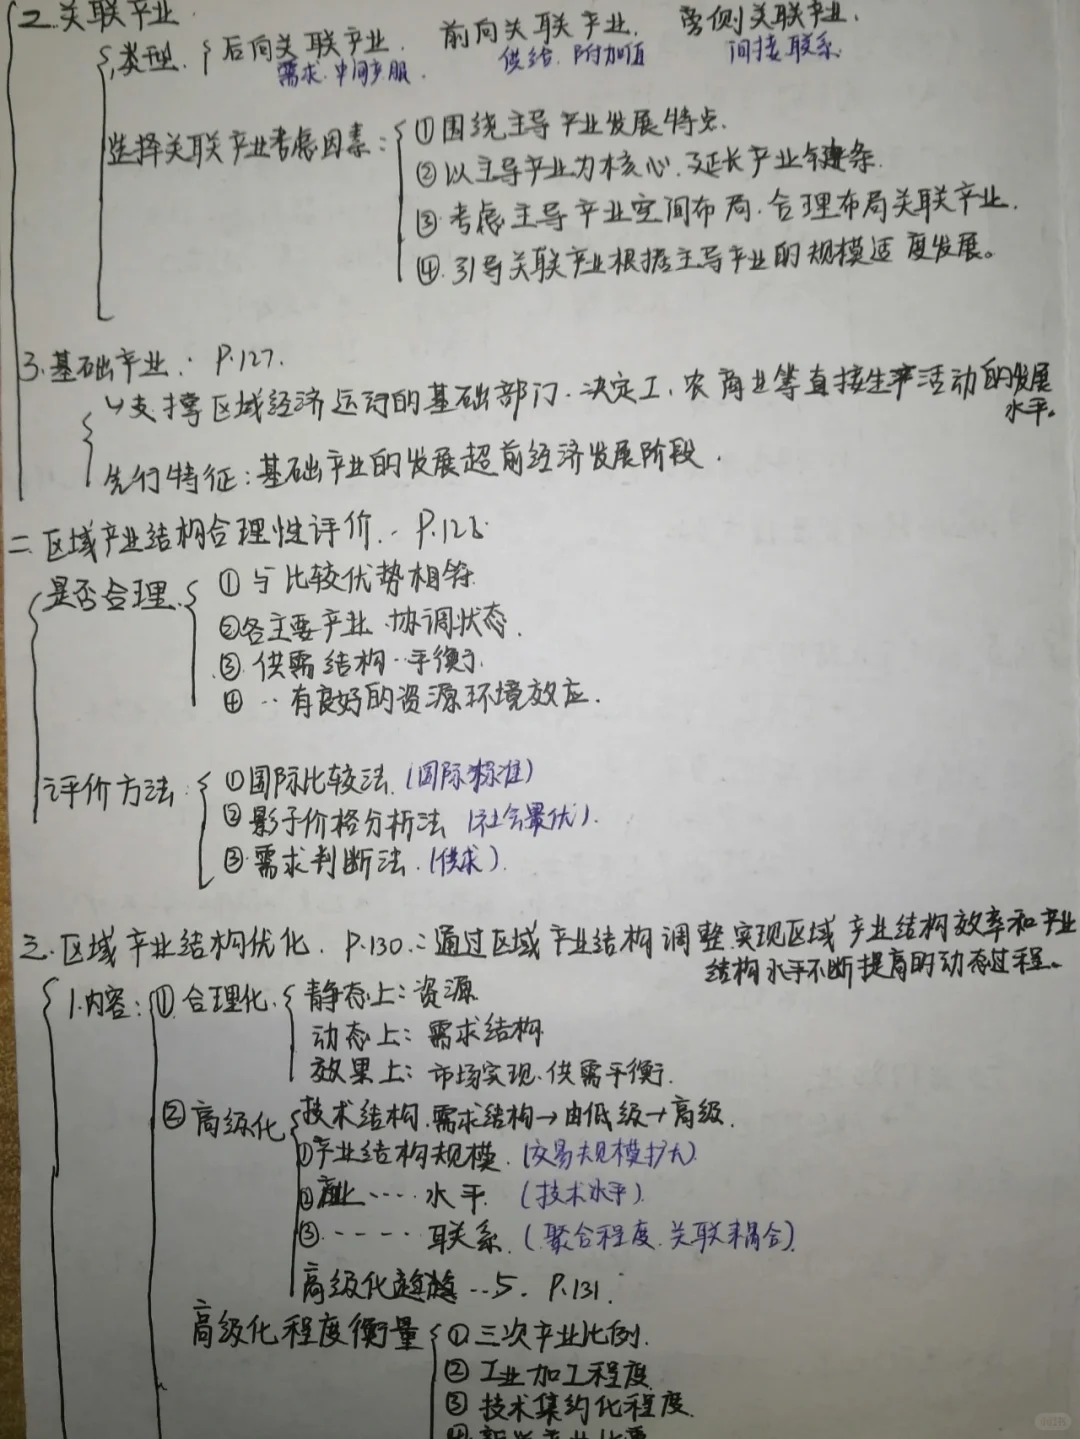 2.关联产业
类型. 后向关联产业. 前向关联产业. 旁侧关联产业.
需求.中间产服. 供给.附加值 间接联系
选择关联产业考虑因素: ①围绕主导产业发展特点.
②以主导产业为核心.延长产业链条.
③考虑主导产业空间布局.合理布局关联产业.
④.引导关联产业根据主导产业的规模适度发展。
3.基础产业. P.127.
↳支撑区域经济运行的基础部门.决定工、农商业等直接生产活动的发展
水平。
先行特征:基础产业的发展超前经济发展阶段.
二.区域产业结构合理性评价.. P.128
是否合理. ①与比较优势相符.
②各主要产业.协调状态.
③.供需结构..平衡.
④ ..有良好的资源环境效应.
评价方法: ①国际比较法.(国际标准)
②影子价格分析法 (社会最优).
③.需求判断法.(供求).
三.区域产业结构优化. P.130.:通过区域产业结构调整.实现区域产业结构效率和产业
结构水平不断提高的动态过程。
1.内容: ①合理化. 静态上:资源
动态上:需求结构
效果上:市场实现.供需平衡.
②高级化 技术结构.需求结构→由低级→高级.
①产业结构规模.(交易规模扩大)
②产业····水平.(技术水平).
③.-----联系.(聚合程度.关联耦合).
高级化趋势...5. P.131.
高级化程度衡量 ①三次产业比例.
②工业加工程度
③技术集约化程度.